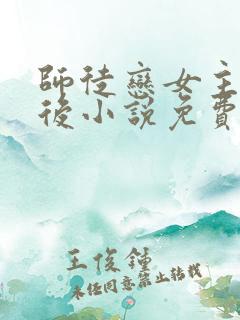 師徒戀女主
後小說免費
王俊鍾
未经同意禁止转载